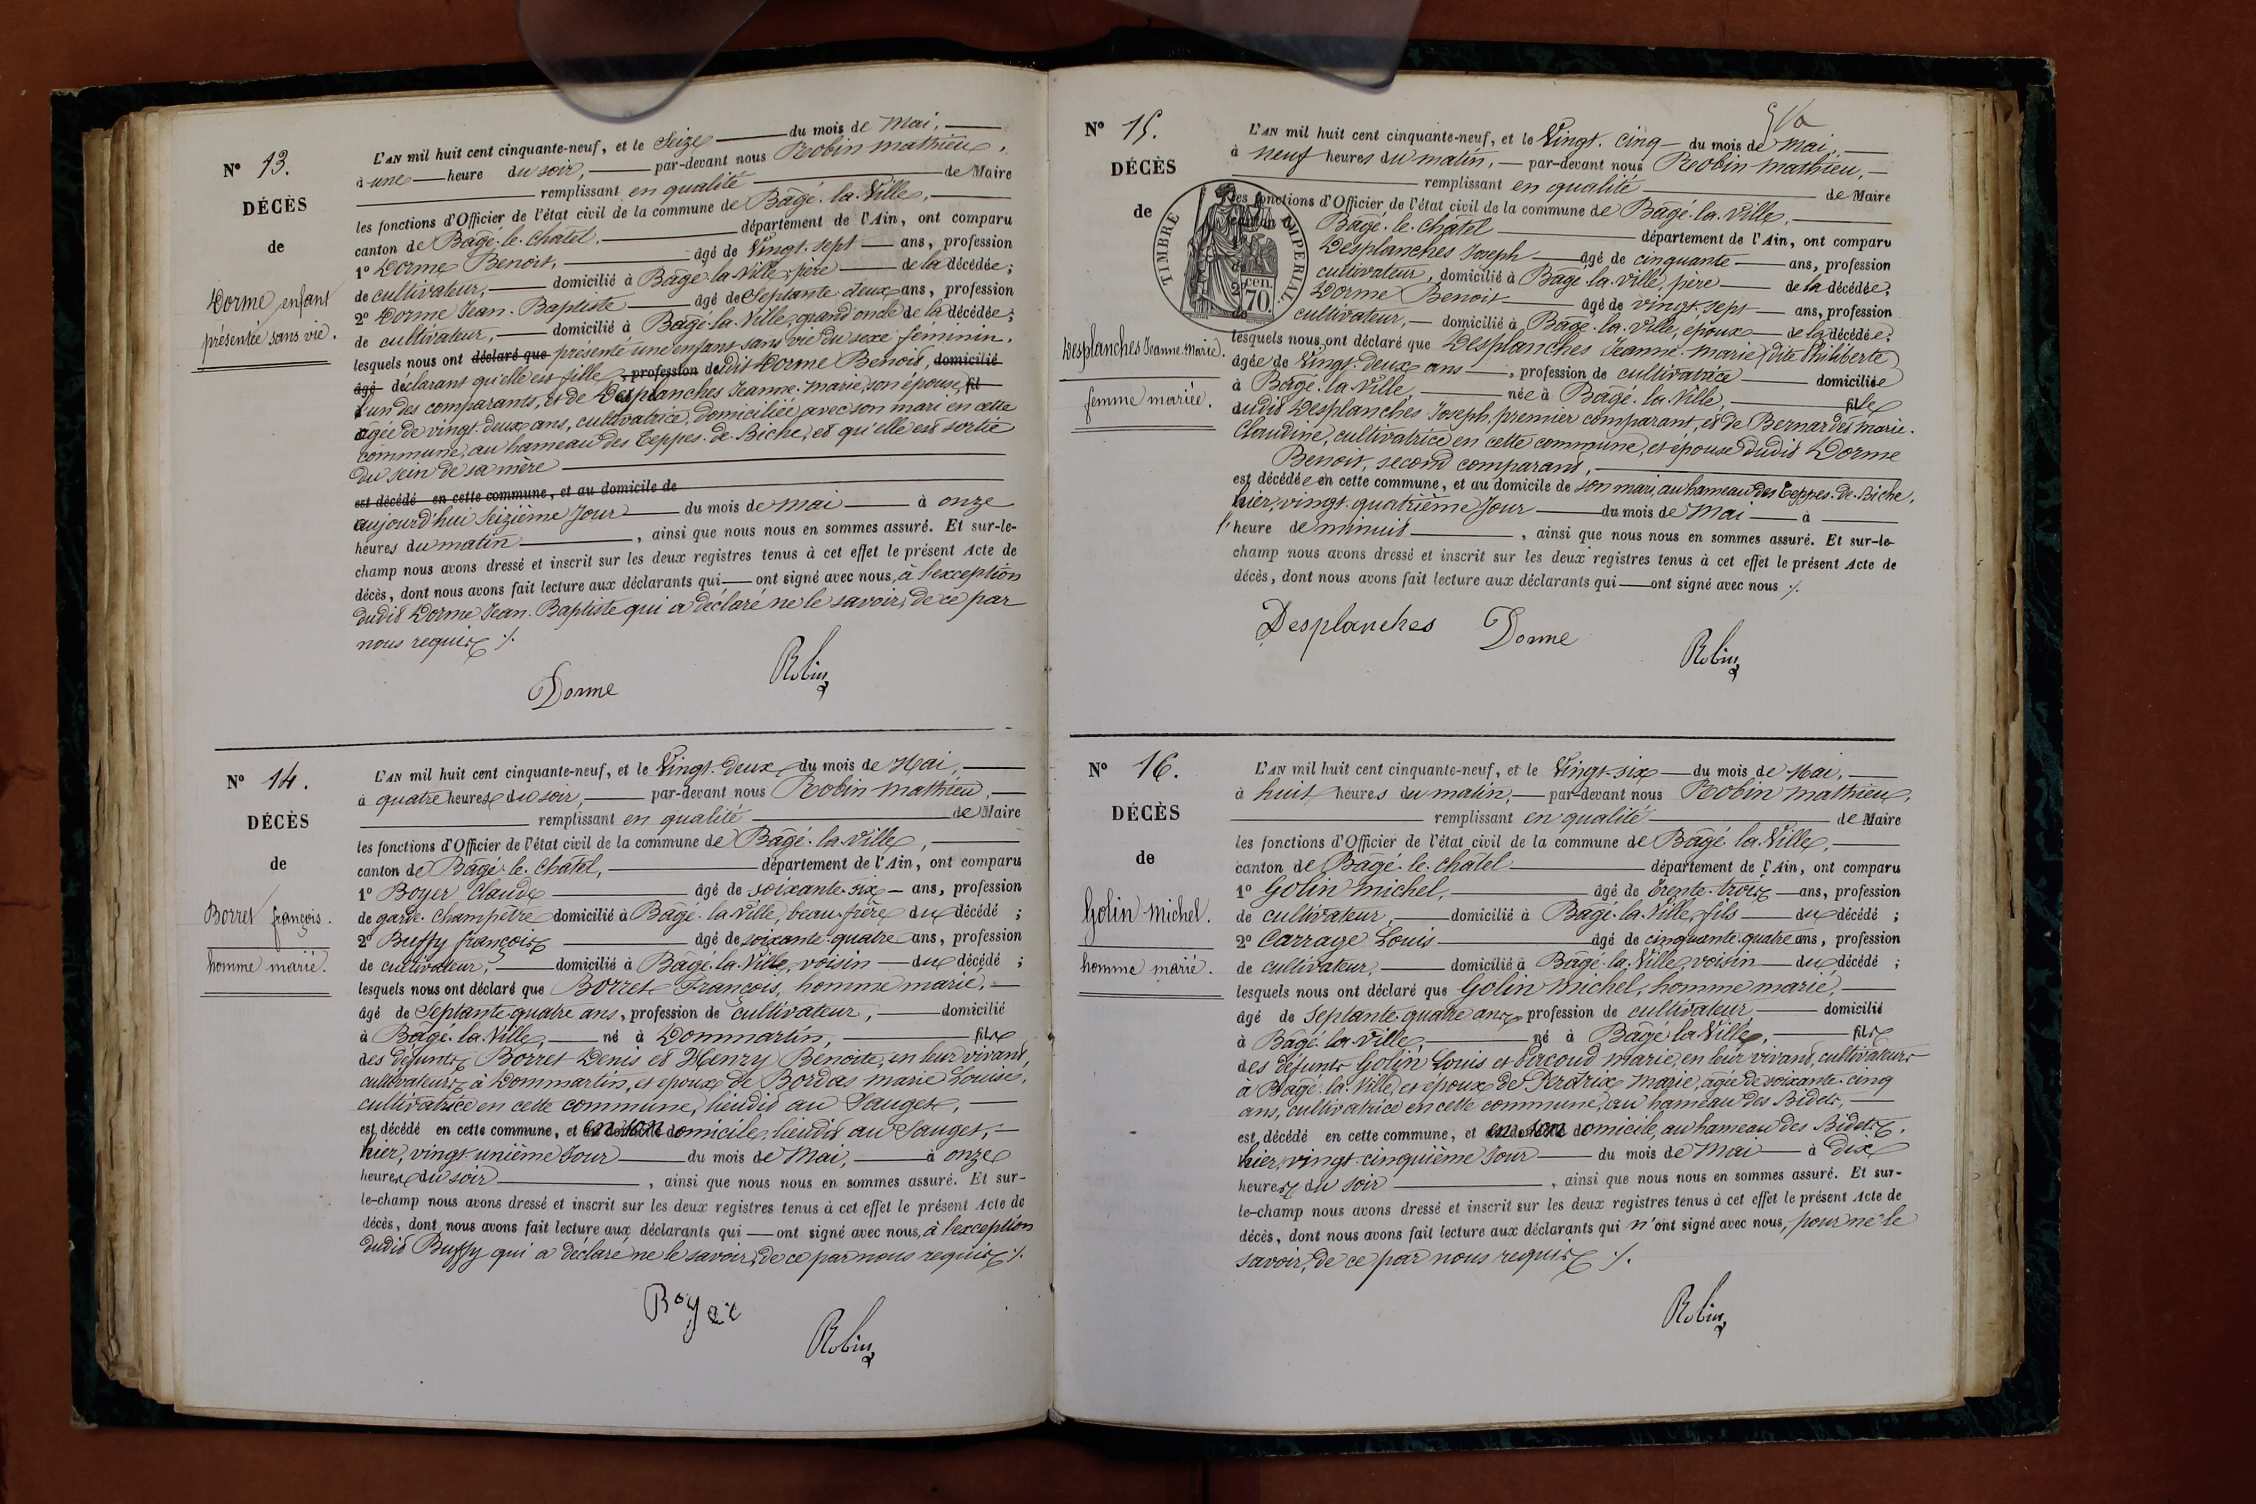 N° 13.
DÉCÈS
de
Dorme enfant
présentée sans vie.
L'AN mil huit cent cinquante-neuf, et le Seize du mois de Mai,
à une heure du soir, par-devant nous Robin Mathieu,
remplissant en qualité de Maire
les fonctions d'Officier de l'état civil de la commune de Bâgé-la-Ville,
canton de Bâgé-le-Châtel, département de l'Ain, ont comparu
1° Dorme Benoit, âgé de Vingt-sept ans, profession
de cultivateur, domicilié à Bâgé-la-Ville, père de la décédée;
2° Dorme Jean-Baptiste âgé de Septante-deux ans, profession
de cultivateur, domicilié à Bâgé-la-Ville, grand oncle de la décédée;
lesquels nous ont déclaré que présenté une enfant sans vie du sexe féminin,
âgé déclarant qu'elle est fille, profession dudit Dorme Benoit, domicilié
l'un des comparants, et de Desplanches Jeanne-Marie, son épouse, fil
âgée de vingt-deux ans, cultivatrice, domiciliée avec son mari en cette
commune, au hameau des Teppes-de-Biche, et qu'elle est sortie
du sein de sa mère
est décédé en cette commune, et au domicile de
aujourd'hui Seizième Jour du mois de Mai à onze
heures du matin, ainsi que nous nous en sommes assuré. Et sur-le-
champ nous avons dressé et inscrit sur les deux registres tenus à cet effet le présent Acte de
décès, dont nous avons fait lecture aux déclarants qui ont signé avec nous, à l'exception
dudit Dorme Jean-Baptiste qui a déclaré ne le savoir, de ce par
nous requis ./.
Dorme
Robin
N° 14.
DÉCÈS
de
Borret françois.
homme marié.
L'AN mil huit cent cinquante-neuf, et le Vingt-deux du mois de Mai,
à quatre heures du soir, par-devant nous Robin Mathieu,
remplissant en qualité de Maire
les fonctions d'Officier de l'état civil de la commune de Bâgé-la-Ville,
canton de Bâgé-le-Châtel, département de l'Ain, ont comparu
1° Boyer Claude âgé de soixante-six ans, profession
de garde-champêtre domicilié à Bâgé-la-Ville, beau-frère du décédé;
2° Buffy françois âgé de soixante-quatre ans, profession
de cultivateur, domicilié à Bâgé-la-Ville, voisin du décédé;
lesquels nous ont déclaré que Borret François, homme marié,
âgé de Septante-quatre ans, profession de cultivateur, domicilié
à Bâgé-la-Ville, né à Dommartin, fils
des défunts Borret Denis et Henry Benoite, en leur vivant,
cultivateurs à Dommartin, et époux de Bordas Marie Louise,
cultivatrice en cette commune, lieudit au Sauget,
est décédé en cette commune, et en son domicile, lieudit au Sauget,
hier, vingt-unième Jour du mois de Mai, à onze
heures du soir, ainsi que nous nous en sommes assuré. Et sur-
le-champ nous avons dressé et inscrit sur les deux registres tenus à cet effet le présent Acte de
décès, dont nous avons fait lecture aux déclarants qui ont signé avec nous, à l'exception
dudit Buffy qui a déclaré ne le savoir, de ce par nous requis ./.
Boyer
Robin
N° 15.
DÉCÈS
de
TIMBRE IMPERIAL
70 cen.
Desplanches Jeanne-Marie.
femme mariée.
L'AN mil huit cent cinquante-neuf, et le Vingt-cinq du mois de Mai,
à neuf heures du matin, par-devant nous Robin Mathieu,
remplissant en qualité de Maire
les fonctions d'Officier de l'état civil de la commune de Bâgé-la-Ville,
canton de Bâgé-le-Châtel département de l'Ain, ont comparu
Desplanches Joseph âgé de cinquante ans, profession
de cultivateur, domicilié à Bâgé-la-Ville, père de la décédée;
2° Dorme Benoit âgé de vingt-sept ans, profession
de cultivateur, domicilié à Bâgé-la-Ville, époux de la décédée;
lesquels nous ont déclaré que Desplanches Jeanne-Marie, dite Philiberte,
âgée de Vingt-deux ans, profession de cultivatrice domiciliée
à Bâgé-la-Ville, née à Bâgé-la-Ville, fille
dudit Desplanches Joseph, premier comparant, et de Bernardet Marie-
Claudine, cultivatrice en cette commune, et épouse dudit Dorme
Benoit, second comparant,
est décédée en cette commune, et au domicile de son mari, au hameau des Teppes-de-Biche,
hier, vingt-quatrième Jour du mois de Mai à
l'heure de minuit, ainsi que nous nous en sommes assuré. Et sur-le-
champ nous avons dressé et inscrit sur les deux registres tenus à cet effet le présent Acte de
décès, dont nous avons fait lecture aux déclarants qui ont signé avec nous ./.
Desplanches
Dorme
Robin
N° 16.
DÉCÈS
de
Golin Michel.
homme marié.
L'AN mil huit cent cinquante-neuf, et le Vingt-six du mois de Mai,
à huit heures du matin, par-devant nous Robin Mathieu,
remplissant en qualité de Maire
les fonctions d'Officier de l'état civil de la commune de Bâgé la-Ville,
canton de Bâgé-le-Châtel département de l'Ain, ont comparu
1° Golin Michel, âgé de Trente-trois ans, profession
de cultivateur, domicilié à Bâgé-la-Ville, fils du décédé;
2° Carrage Louis âgé de cinquante-quatre ans, profession
de cultivateur, domicilié à Bâgé-la-Ville, voisin du décédé;
lesquels nous ont déclaré que Golin Michel, homme marié,
âgé de Septante-quatre ans, profession de cultivateur domicilié
à Bâgé-la-Ville, né à Bâgé-la-Ville, fils
des défunts Golin Louis et Percoud Marie, en leur vivant, cultivateurs
à Bâgé-la-Ville, et époux de Perdrix Marie, âgée de soixante-cinq
ans, cultivatrice en cette commune, au hameau des Bidets,
est décédé en cette commune, et en son domicile, au hameau des Bidets.
hier, vingt-cinquième Jour du mois de Mai à Dix
heures du soir, ainsi que nous nous en sommes assuré. Et sur-
le-champ nous avons dressé et inscrit sur les deux registres tenus à cet effet le présent Acte de
décès, dont nous avons fait lecture aux déclarants qui n'ont signé avec nous, pour ne le
savoir, de ce par nous requis ./.
Robin